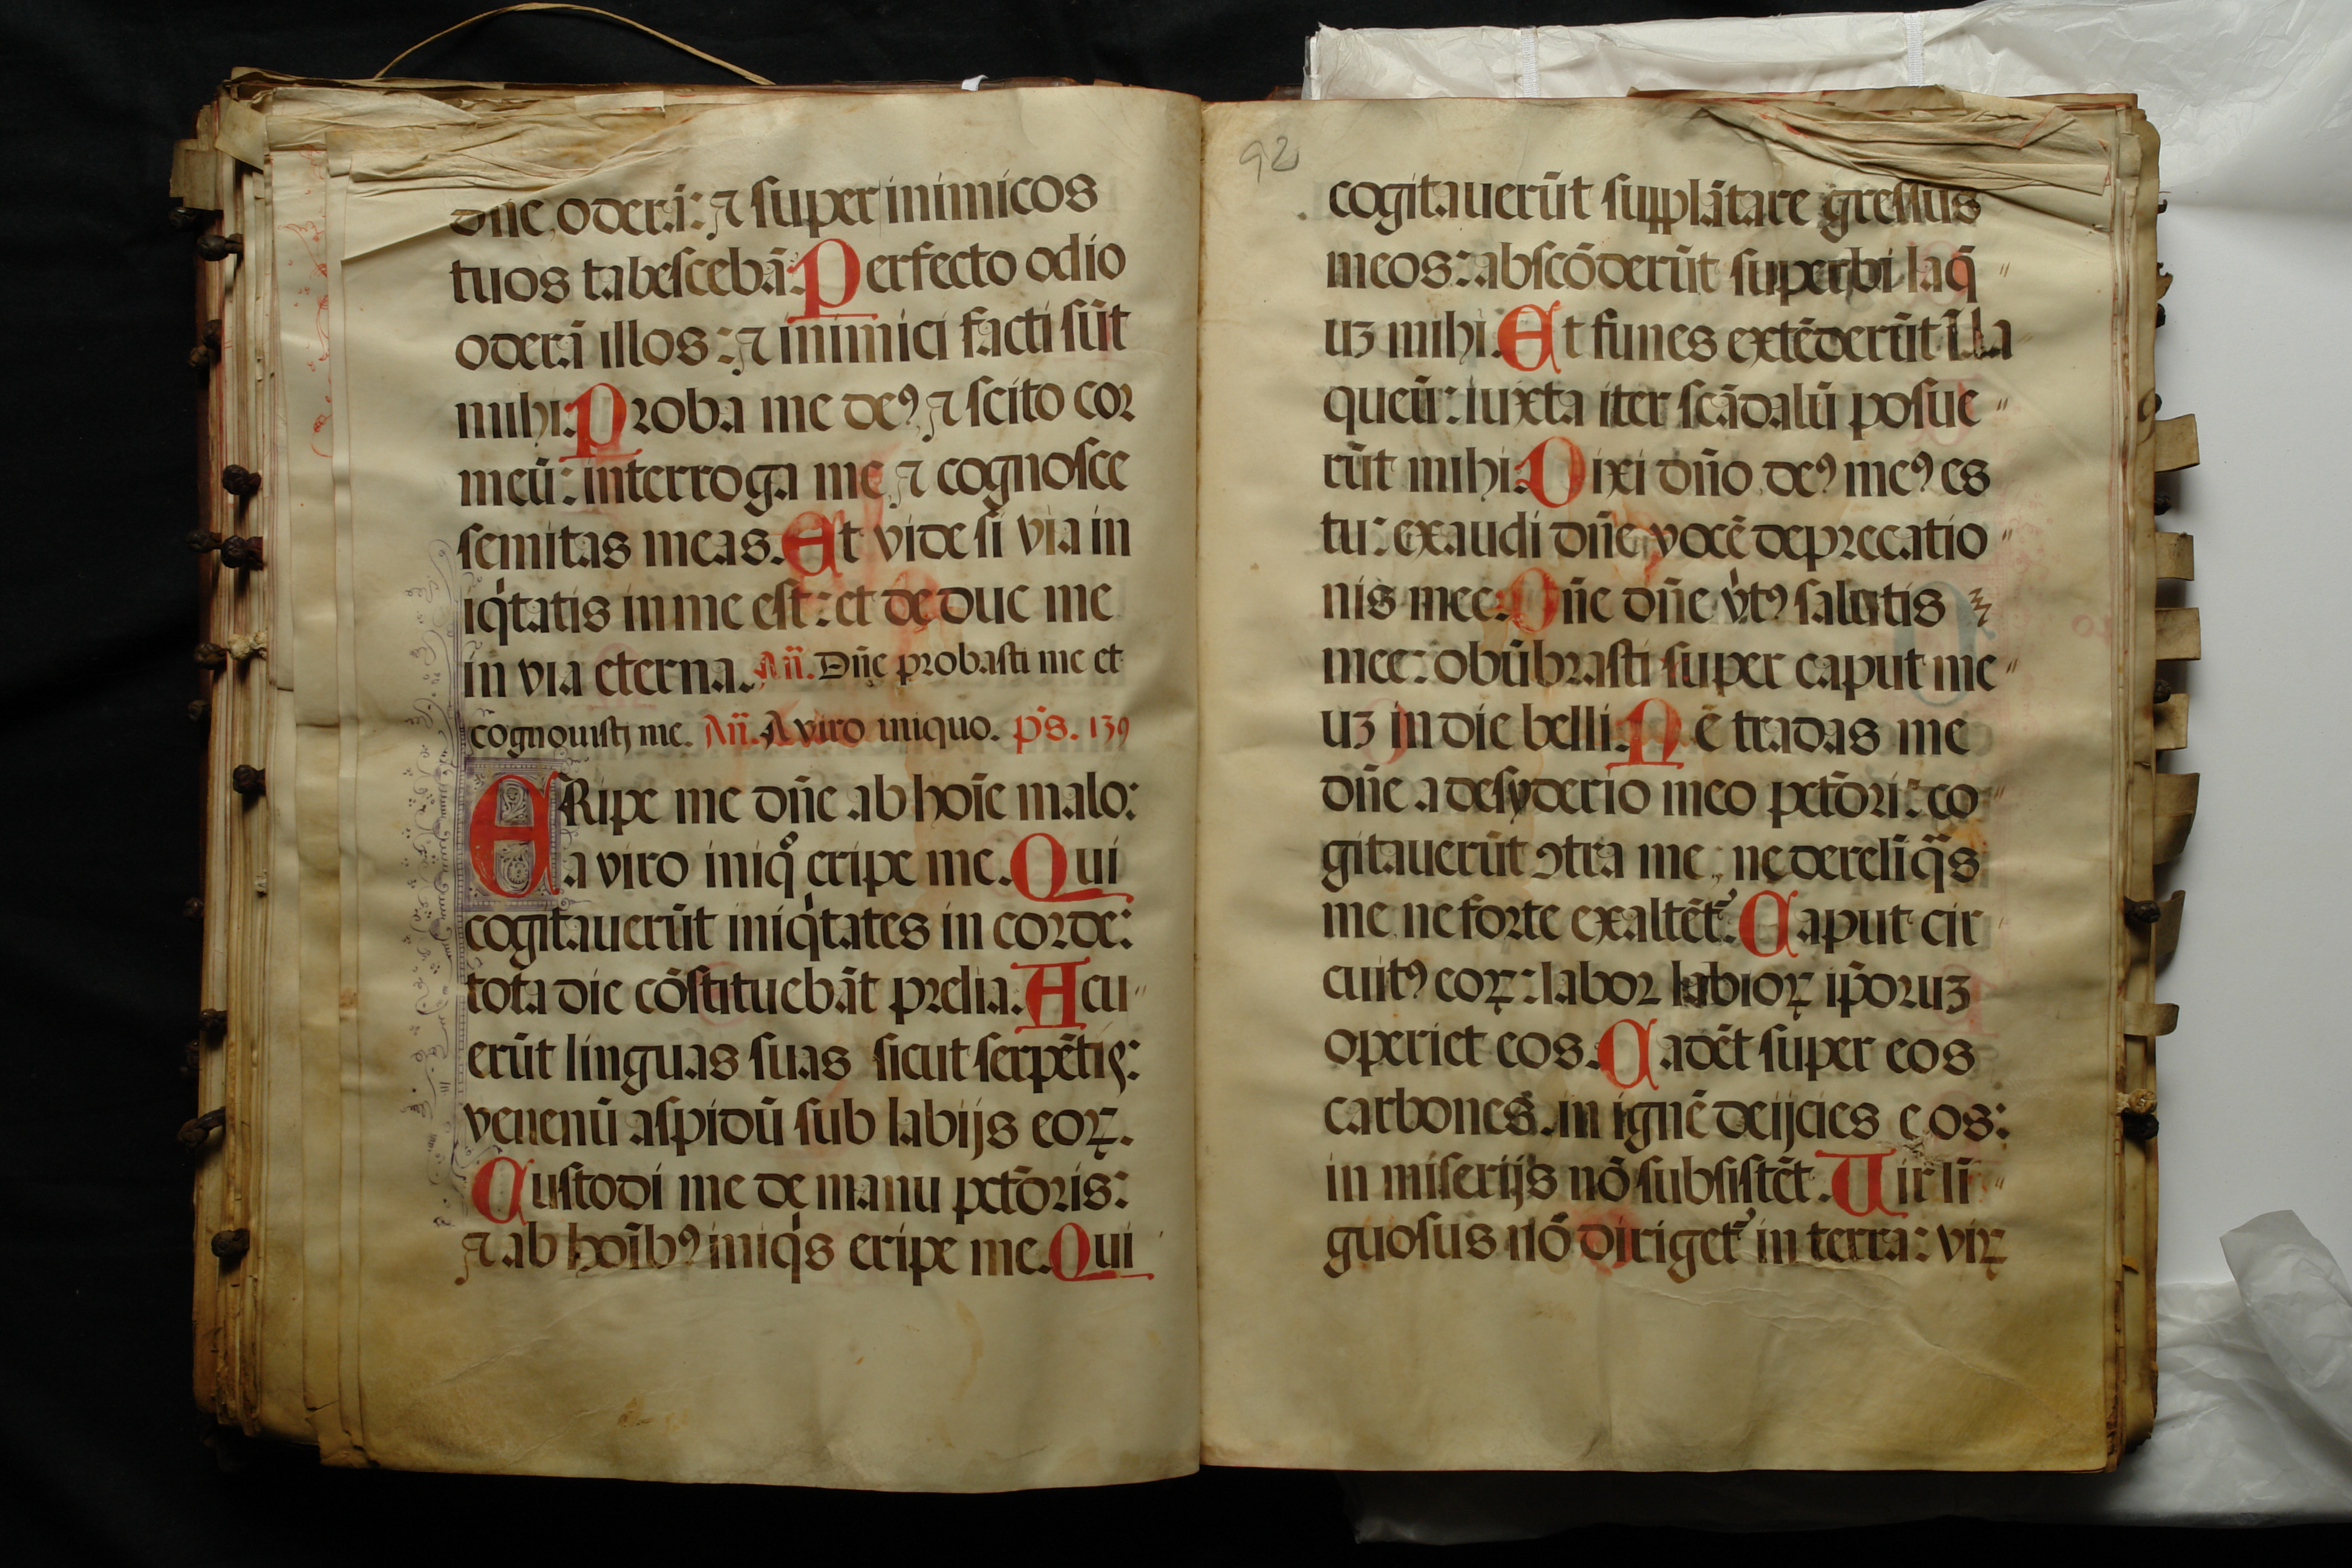 dñe oderā: ⁊ super inimicos
tuos tabescebā: Perfecto odio
oderā illos: ⁊ inimici facti sūt
mihi. Proba me deꝰ ⁊ scito cor
meū: interroga me ⁊ cognosce
semitas meas. Et vide si via in
iq̇tatis in me est: et de duc me
in via eterna. Añ. Dñe probasti me et
cognouisti me. Añ. A viro iniquo. ps̄. 139
ERipe me dñe ab hoīe malo:
a viro iniqͦ eripe me. Qui
cogitauerūt iniq̇tates in corde:
tota die cōstituebāt prelia. Acu
erūt linguas suas sicut serpētis:
venenū aspidū sub labijs eoꝝ.
Custodi me de manu pctōris:
⁊ ab hoībꝰ iniq̇s eripe me. Qui
92
cogitauerūt supplātare gressus
meos: abscōderūt superbi laq̄
uꝫ mihi. Et funes extēderūt ī la
queū: iuxta iter scādalū posue
rūt mihi. Dixi dño deꝰ meꝰ es
tu: exaudi dñe vocē deprecatio
nis mee. Dñe dñe v̇tꝰ salutis
mee: obūbrasti super caput me
uꝫ in die belli. Nē tradas me
dñe a desyderio meo pctōri: co
gitauerūt ꝯtra me, ne derelīq̄s
me ne forte exaltēt᷑. Caput cir
cuitꝰ eoꝝ: labor labioꝝ ip̄oruꝫ
operiet eos. Cadēt super eos
carbones. in ignē deijcies eos:
in miserijs nō subsistēt. Uir li
guosus nō diriget᷑ in terra: viꝝ